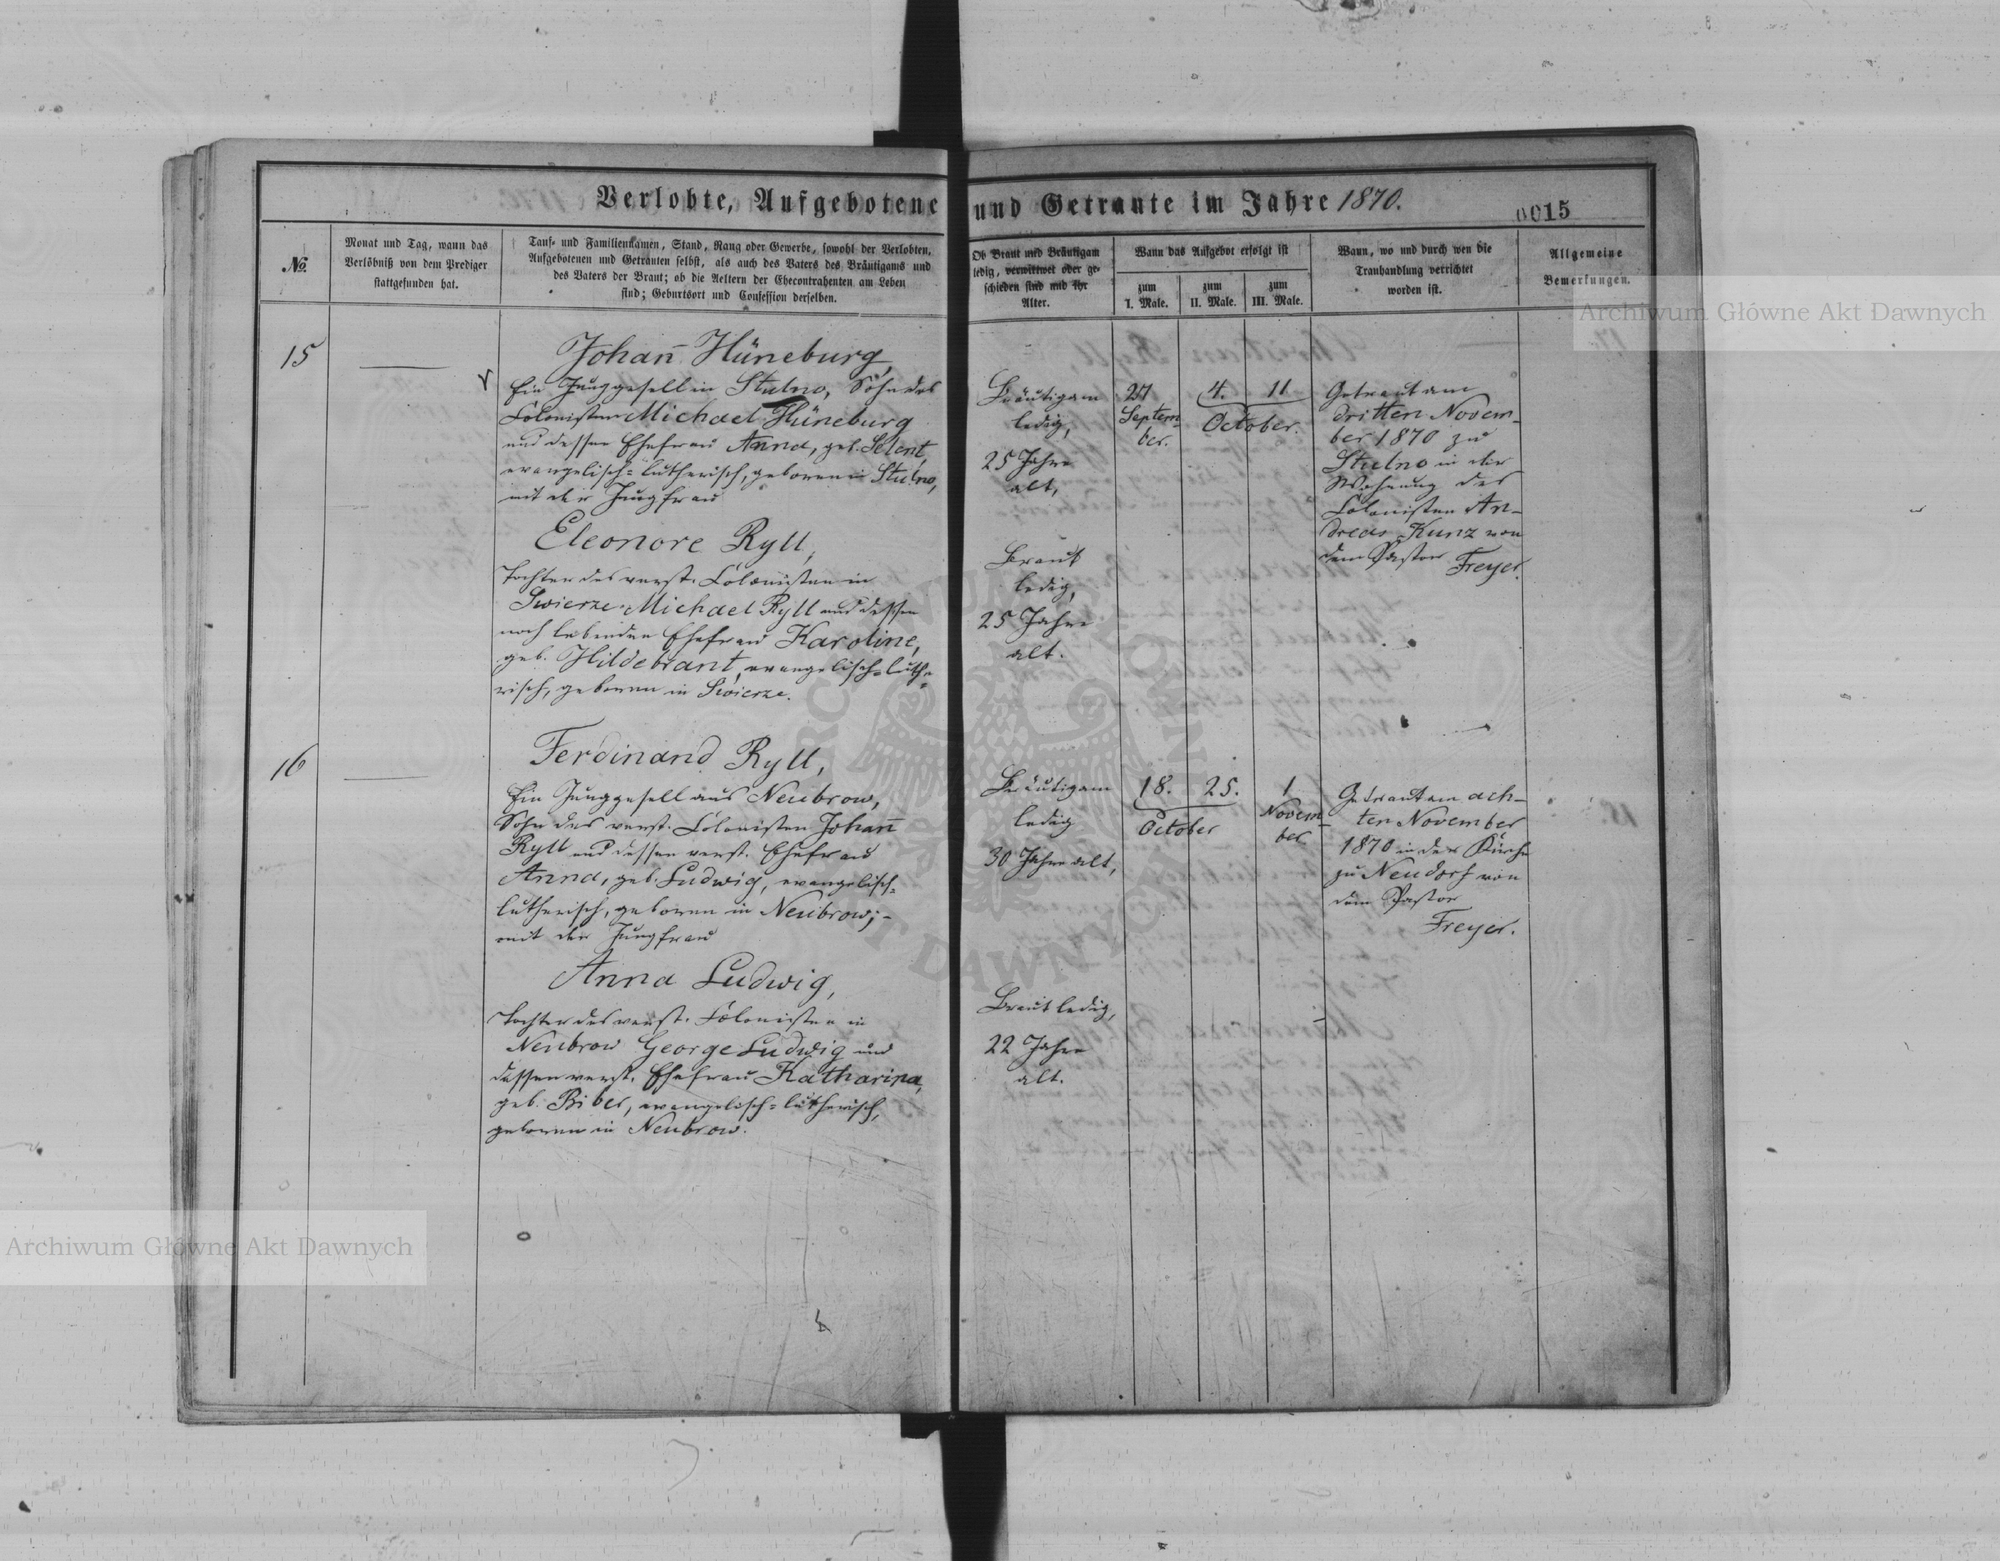 Verlobte, Aufgebotene und Getraute im Jahre 1870.
0015
No.
Monat und Tag, wann das
Verlöbniß von dem Prediger
stattgefunden hat.
Tauf- und Familiennamen, Stand, Rang oder Gewerbe, sowohl der Verlobten,
Aufgebotenen und Getrauten selbst, als auch des Vaters des Bräutigams und
des Vaters der Braut; ob die Aeltern der Ehecontrahenten am Leben
sind; Geburtsort und Confession derselben.
Ob Braut und Bräutigam
ledig, verwittwet oder ge-
schieden sind und ihr
Alter.
Wann das Aufgebot erfolgt ist
zum
I. Male.
zum
II. Male.
zum
III. Male.
Wann, wo und durch wen die
Trauhandlung verrichtet
worden ist.
Allgemeine
Bemerkungen.
15
Johañ Hüneburg,
Ein Junggesell in Stulno, Sohn des
Colonisten Michael Hüneburg
und dessen Ehefrau Anna, geb. Selent,
evangelisch=lutherisch, geboren in Stulno,
mit der Jungfrau
Eleonore Ryll,
Tochter des verst. Colonisten in
Swierze Michael Ryll und dessen
noch lebenden Ehefrau Karoline,
geb. Hildebrant, evangelisch=luthe=
risch, geboren in Swierze.
Bräutigam
ledig,
25 Jahre
alt,
Braut
ledig,
25 Jahre
alt.
27
Septem-
ber.
4. 11
October.
Getraut am
dritten Novem-
ber 1870 zu
Stulno in der
Wohnung des
Colonisten An-
dreas Kunz von
dem Pastor Freyer.
16
Ferdinand Ryll,
Ein Junggesell aus Neubrow,
Sohn des verst. Colonisten Johañ
Ryll und dessen verst. Ehefrau
Anna, geb. Ludwig, evangelisch-
lutherisch, geboren in Neubrow; -
mit der Jungfrau
Anna Ludwig,
Tochter des verst. Colonisten in
Neubrow George Ludwig und
dessen verst. Ehefrau Katharina,
geb. Biber, evangelisch=lutherisch,
geboren in Neubrow.
Bräutigam
ledig
30 Jahre alt,
Braut ledig,
22 Jahre
alt.
18. 25.
October
1
Novem-
ber
Getraut am ach-
ten November
1870 in der Kirche
zu Neudorf von
dem Pastor
Freyer.
Archiwum Główne Akt Dawnych
Archiwum Główne Akt Dawnych